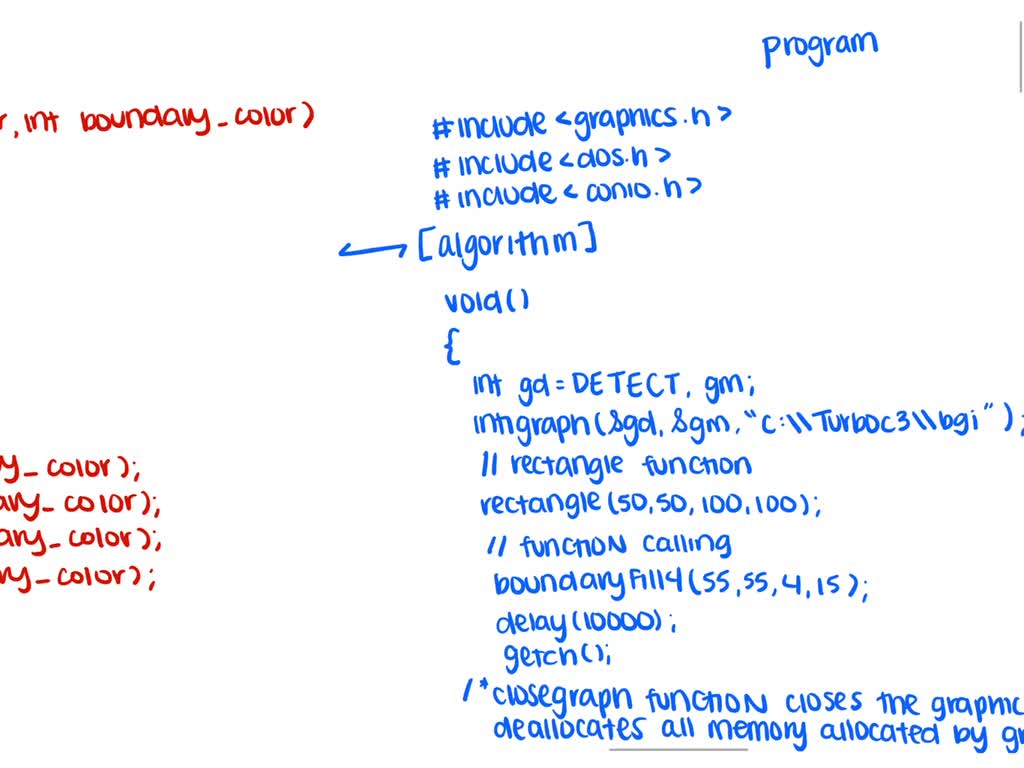 program
r, int boundary_color)
#include <graphics.h>
#include <dos.h>
#include < conio.h>
[algorithm]
void()
{
int gd = DETECT, gm;
initgraph(&gd, &gm, "c:\\Turboc3\\bgi");
// rectangle function
rectangle(50,50,100,100);
// function calling
boundaryfill4(55,55,4,15);
delay(10000);
getch();
/*closegraph function closes the graphic
deallocates all memory allocated by gr
y_color);
ary_color);
ary_color);
ry_color);